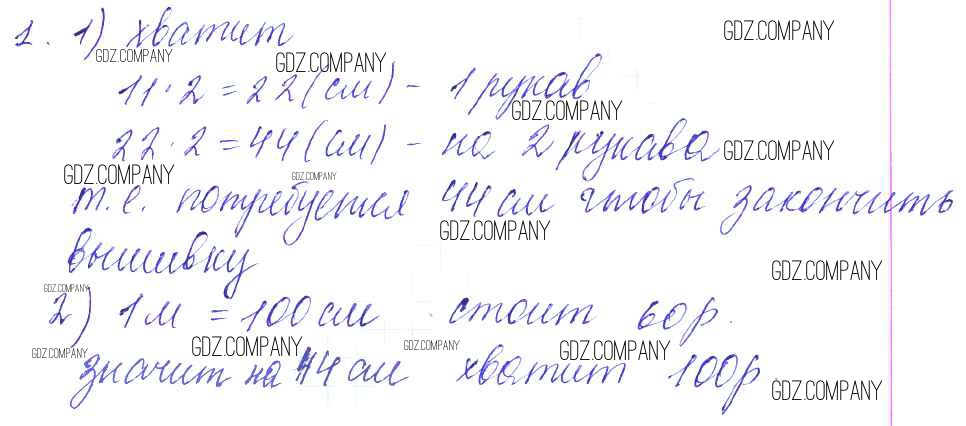 1. 1) хватит
GDZ.COMPANY GDZ.COMPANY GDZ.COMPANY
11·2=22(см) - 1 рукав
GDZ.COMPANY
22·2=44(см) - на 2 рукава
GDZ.COMPANY GDZ.COMPANY GDZ.COMPANY
т.е. потребуется 44 см чтобы закончить
GDZ.COMPANY
вышивку
GDZ.COMPANY GDZ.COMPANY
2) 1 м = 100 см стоит 60 р.
GDZ.COMPANY GDZ.COMPANY GDZ.COMPANY GDZ.COMPANY
значит на 44 см хватит 100р.
GDZ.COMPANY